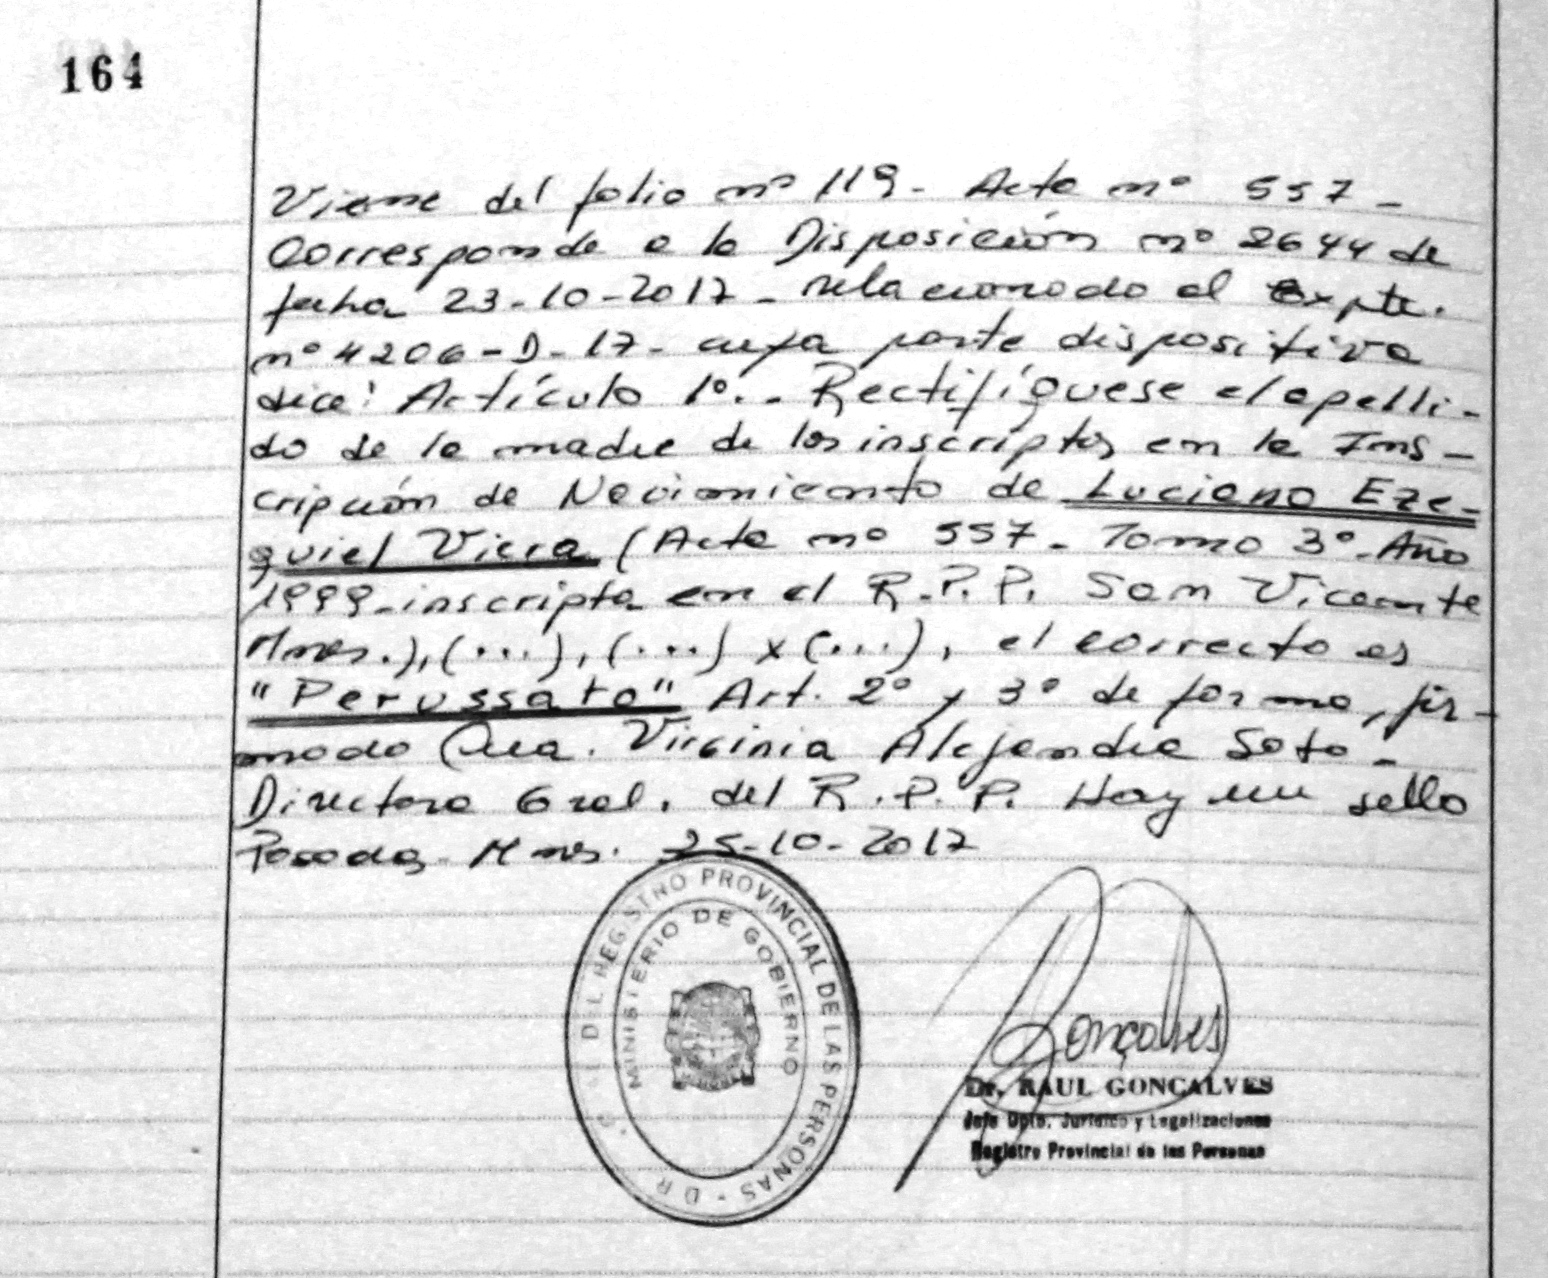 164
Viene del folio nº 119 - Acta nº 557 -
Corresponde a la Disposición nº 2644 de
fecha 23-10-2017 - relacionado al Expte.
nº 4206-D-17- cuya parte dispositiva
dice: Artículo 1º.- Rectifíquese el apelli-
do de la madre de los inscriptos en la Ins-
cripción de Nacimiento de Luciano Eze-
quiel Viera (Acta nº 557 - Tomo 3º - Año
1999 - inscripta en el R.P.P. San Vicente
Mnes.), (...), (...) y (...), el correcto es
"Perussato" Art. 2º y 3º de forma, fir-
mado Dra. Virginia Alejandra Soto -
Directora Gral. del R.P.P. Hay un sello
Posadas Mnes. 25-10-2017
DEL REGISTRO PROVINCIAL DE LAS PERSONAS
MINISTERIO DE GOBIERNO
Gonçalves
Dr. RAUL GONCALVES
Jefe Dpto. Jurídico y Legalizaciones
Registro Provincial de las Personas